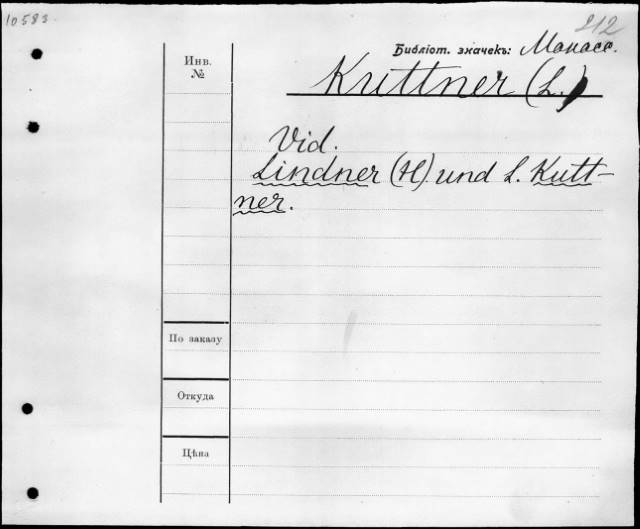 10583
212
Библіот. значекъ: Монасе.
Инв.
№
Kuttner (L.)
Vid.
Lindner (H). und L. Kutt-
ner.
По заказу
Откуда
Цѣна